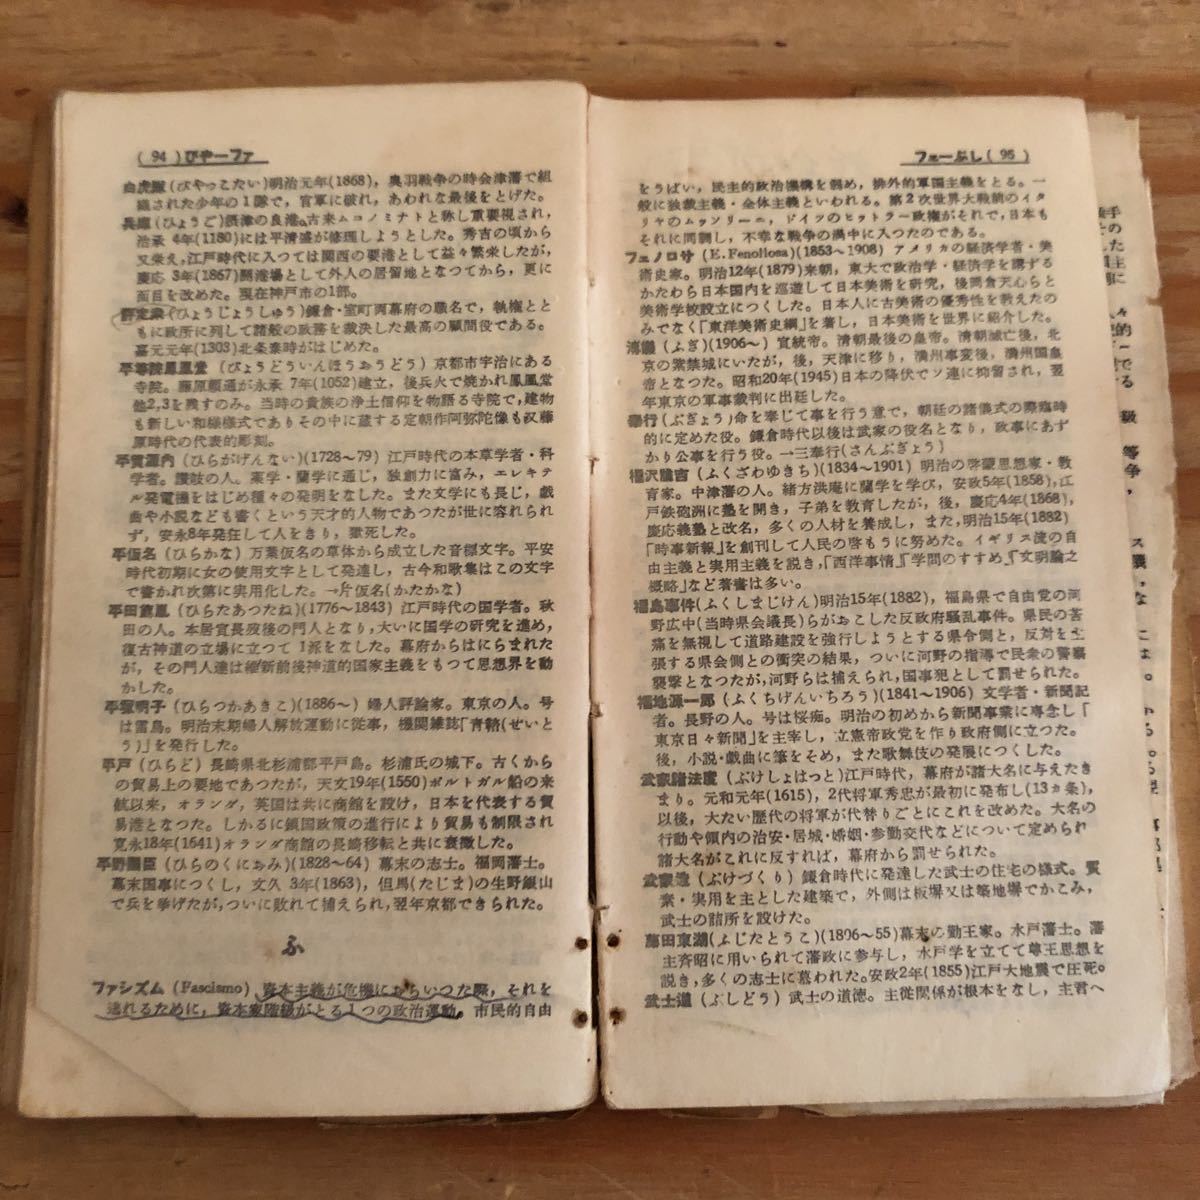 (94)びやーファ
白虎隊(びやっこたい)明治元年(1868)，奥羽戦争の時会津藩で組
織された少年の1隊で，官軍に破れ，あわれな最後をとげた。
兵庫(ひょうご)摂津の良港。古来ムコノミナトと称し重要視され，
治承 4年(1180)には平清盛が修理しようとした。秀吉の頃から
又栄え，江戸時代に入つては関西の要港として益々繁栄したが，
慶応 3年(1867)開港場として外人の居留地となつてから，更に
面目を改めた。現在神戸市の1部。
評定衆(ひょうじょうしゅう)鎌倉・室町両幕府の職名で，執権とと
もに政所に列して諸般の政務を裁決した最高の顧問役である。
嘉元元年(1303)北条泰時がはじめた。
平等院鳳凰堂(びょうどういんほうおうどう)京都市宇治にある
寺院。藤原頼通が永承 7年(1052)建立，後兵火で焼かれ鳳凰堂
他2,3を残すのみ。当時の貴族の浄土信仰を物語る寺院で，建物
も新しい和様様式でありその中に蔵する定朝作阿弥陀像も又藤
原時代の代表的彫刻。
平賀源内(ひらがげんない)(1728〜79)江戸時代の本草学者・科
学者。讃岐の人。薬学・蘭学に通じ，独創力に富み，エレキテ
ル発電機をはじめ種々の発明をなした。また文学にも長じ，戯
曲や小説なども書くという天才的人物であつたが世に容れられ
ず，安永8年発狂して人をきり，獄死した。
平仮名(ひらかな)万葉仮名の草体から成立した音標文字。平安
時代初期に女の使用文字として発達し，古今和歌集はこの文字
で書かれ次第に実用化した。→片仮名(かたかな)
平田篤胤(ひらたあつたね)(1776〜1843)江戸時代の国学者。秋
田の人。本居宣長歿後の門人となり，大いに国学の研究を進め，
復古神道の立場に立つて1派をなした。幕府からはにらまれた
が，その門人達は維新前後神道的国家主義をもつて思想界を動
かした。
平塚明子(ひらつかあきこ)(1886〜)婦人評論家。東京の人。号
は雷鳥。明治末期婦人解放運動に従事，機関雑誌「青鞜(せいと
う)」を発行した。
平戸(ひらど)長崎県北杉浦郡平戸島。杉浦氏の城下。古くから
の貿易上の要地であつたが，天文19年(1550)ポルトガル船の来
航以来，オランダ，英国は共に商館を設け，日本を代表する貿
易港となつた。しかるに鎖国政策の進行により貿易も制限され
寛永18年(1641)オランダ商館の長崎移転と共に衰微した。
平野国臣(ひらのくにおみ)(1828〜64)幕末の志士。福岡藩士。
幕末国事につくし，文久 3年(1863)，但馬(たじま)の生野銀山
で兵を挙げたが，ついに敗れて捕えられ，翌年京都できられた。
ふ
ファシズム(Fascismo)資本主義が危機におちいつた際，それを
逃れるために，資本家階級がとる1つの政治運動。市民的自由
フェーぶし(95)
をうばい，民主的政治機構を弱め，排外的軍国主義をとる。一
般に独裁主義・全体主義といわれる。第2次世界大戦前のイタ
リヤのムッソリーニ，ドイツのヒットラー政権がそれで，日本も
それに同調し，不幸な戦争の渦中に入つたのである。
フェノロサ(E.Fenollosa)(1853〜1908)アメリカの経済学者・美
術史家。明治12年(1879)来朝，東大で政治学・経済学を講ずる
かたわら日本国内を巡遊して日本美術を研究，後岡倉天心らと
美術学校設立につくした。日本人に古美術の優秀性を教えたの
みでなく「東洋美術史綱」を著し，日本美術を世界に紹介した。
溥儀(ふぎ)(1906〜)宣統帝。清朝最後の皇帝。清朝滅亡後，北
京の紫禁城にいたが，後，天津に移り，満州事変後，満州国皇
帝となつた。昭和20年(1945)日本の降伏でソ連に拘留され，翌
年東京の軍事裁判に出廷した。
奉行(ぶぎょう)命を奉じて事を行う意で，朝廷の諸儀式の際臨時
的に定めた役。鎌倉時代以後は武家の役名となり，政事にあず
かり公事を行う役。→三奉行(さんぶぎょう)
福沢諭吉(ふくざわゆきち)(1834〜1901)明治の啓蒙思想家・教
育家。中津藩の人。緒方洪庵に蘭学を学び，安政5年(1858)，江
戸鉄砲洲に塾を開き，子弟を教育したが，後，慶応4年(1868)，
慶応義塾と改名，多くの人材を養成し，また，明治15年(1882)
「時事新報」を創刊して人民の啓もうに努めた。イギリス流の自
由主義と実用主義を説き，「西洋事情」「学問のすすめ」「文明論之
概略」など著書は多い。
福島事件(ふくしまじけん)明治15年(1882)，福島県で自由党の河
野広中(当時県会議長)らがおこした反政府騒乱事件。県民の苦
痛を無視して道路建設を強行しようとする県令側と，反対を主
張する県会側との衝突の結果，ついに河野の指導で民衆の警察
襲撃となつたが，河野らは捕えられ，国事犯として罰せられた。
福地源一郎(ふくちげんいちろう)(1841〜1906)文学者・新聞記
者。長野の人。号は桜痴。明治の初めから新聞事業に専念し「
東京日々新聞」を主宰し，立憲帝政党を作り政府側に立つた。
後，小説・戯曲に筆をそめ，また歌舞伎の発展につくした。
武家諸法度(ぶけしょはっと)江戸時代，幕府が諸大名に与えたき
まり。元和元年(1615)，2代将軍秀忠が最初に発布し(13ヵ条)，
以後，大たい歴代の将軍が代替りごとにこれを改めた。大名の
行動や領内の治安・居城・婚姻・参勤交代などについて定められ
諸大名がこれに反すれば，幕府から罰せられた。
武家造(ぶけづくり)鎌倉時代に発達した武士の住宅の様式。質
素・実用を主とした建築で，外側は板塀又は築地塀でかこみ，
武士の詰所を設けた。
藤田東湖(ふじたとうこ)(1806〜55)幕末の勤王家。水戸藩士。藩
主斉昭に用いられて藩政に参与し，水戸学を立てて尊王思想を
説き，多くの志士に慕われた。安政2年(1855)江戸大地震で圧死。
武士道(ぶしどう)武士の道徳。主従関係が根本をなし，主君へ